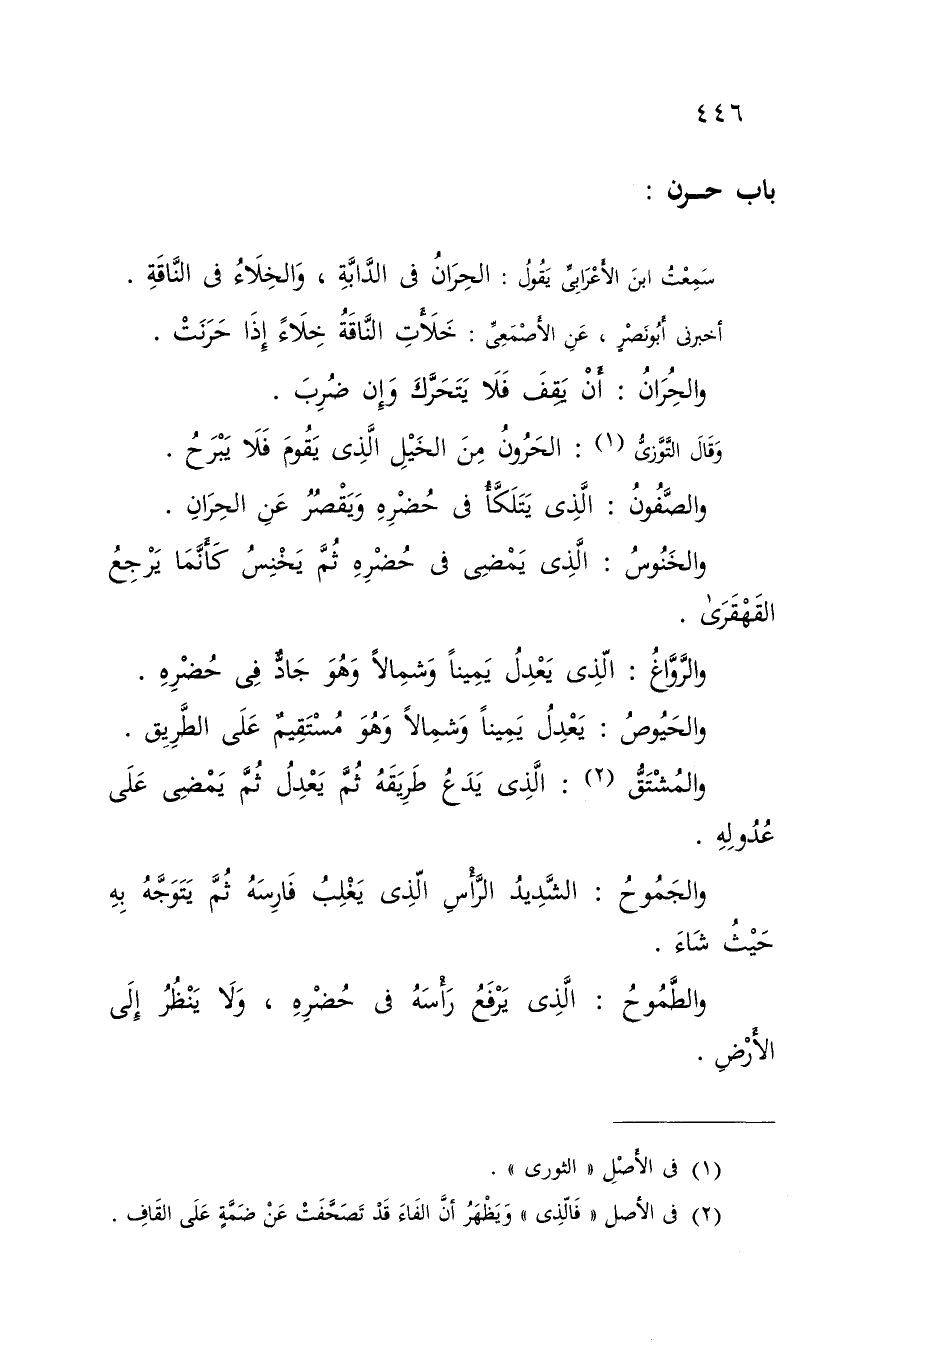 ٤٤٦
باب حـرن :
سَمِعْتُ ابنَ الأَعْرَابِىِّ يَقُولُ : الحِرَانُ فى الدَّابَّةِ ، وَالخِلَاءُ فى النَّاقَةِ .
أخبرنى أَبُونَصْرٍ ، عَنِ الأَصْمَعِىِّ : خَلَأَتِ النَّاقَةُ خِلَاءً إِذَا حَرَنَتْ .
والحِرَانُ : أَنْ يَقِفَ فَلَا يَتَحَرَّكَ وَإِن ضُرِبَ .
وَقَالَ التَّوَّزِىُّ (١) : الحَرُونُ مِنَ الخَيْلِ الَّذِى يَقُومَ فَلَا يَبْرَحُ .
والصَّفُونُ : الَّذِى يَتَلَكَّأُ فى حُضْرِهِ وَيَقْصُرُ عَنِ الحِرَانِ .
والخَنُوسُ : الَّذِى يَمْضِى فى حُضْرِهِ ثُمَّ يَخْنِسُ كَأَنَّمَا يَرْجِعُ
القَهْقَرَىٰ .
والرَّوَّاغُ : الّذِى يَعْدِلُ يَمِيناً وَشمِالاً وَهُوَ جَادٌّ فِى حُضْرِهِ .
والحَيُوصُ : يَعْدِلُ يَمِيناً وَشمِالاً وَهُوَ مُسْتَقِيمٌ عَلَى الطَّرِيق .
والمُشْتَقُّ (٢) : الَّذِى يَدَعُ طَرِيَقَهُ ثُمَّ يَعْدِلُ ثُمَّ يَمْضِى عَلَى
عُدُولِهِ .
والجَمُوحُ : الشَّدِيدُ الرَّأْسِ الّذِى يَغْلِبُ فَارِسَهُ ثُمَّ يَتَوَجَّهُ بِهِ
حَيْثُ شَاءَ .
والطَّمُوحُ : الَّذِى يَرْفَعُ رَأْسَهُ فى حُضْرِهِ ، وَلَا يَنْظُرُ إِلَى
الأَرْضِ .
(١) فى الأَصْلِ « الثورى » .
(٢) فى الأصل « فَالّذِى » وَيَظْهَرُ أنَّ الفَاءَ قَدْ تَصَحَّفَتْ عَنْ ضَمَّةٍ عَلَى القَافِ .